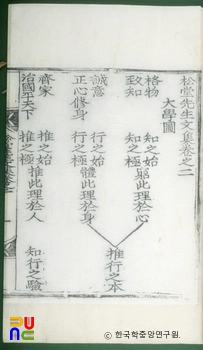 松堂先生文集卷之二
大學圖
格物
致知
知之始
知之極
窮此理於心
誠意
正心修身
行之始
行之極
體此理於身
推行之本
齊家
治國平天下
推之始
推之極
推此理於人
知行之驗
PUNC
© 한국학중앙연구원.